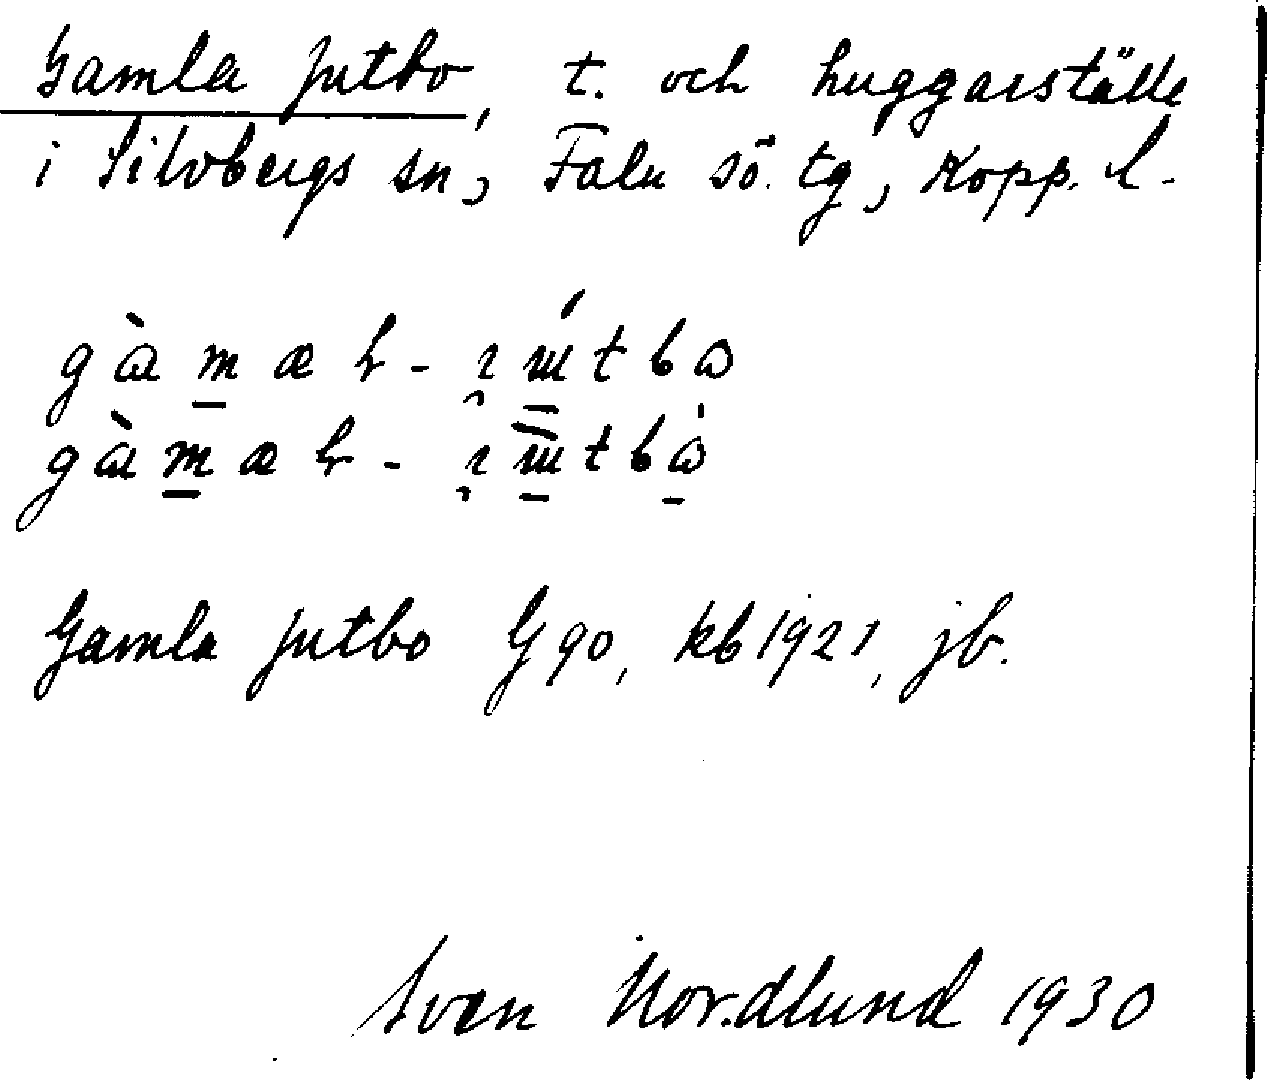 Gamla Jutbo, t. och huggarställe
i Silvbergs sn, Falu sö. tg, Kopp. l.
Gamla Jutbo G 90, kb 1921, jb.
Sven Nordlund 1930